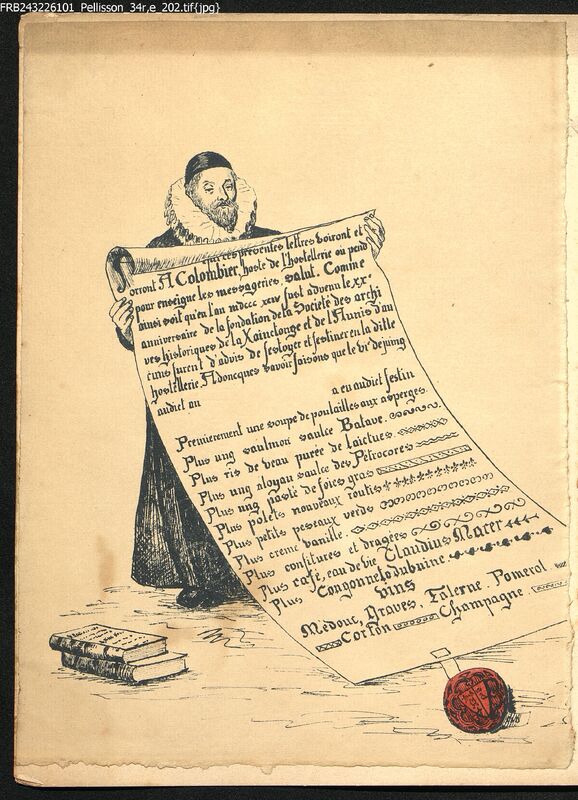 FRB243226101_Pellisson_34r,e_202.tif{jpg}
qui ces présentes lettres voiront et
orront A Colombier, hoste de l'hostellerie où pend
pour enseigne les messageries, salut. Comme
ainsi soit qu'en l'an mdccc xciv fust advenu le xxe
anniversaire de la fondation de la Société des archi
ves historiques de la Xainctonge et de l'Aunis d'au
cuns furent d'advis de festoyer et festiner en la dite
hostellerie, Adoncques savoir faisons que le vie de juing
audict an a eu audict festin
Premierement une soupe de poulailles aux asperges.
Plus ung saulmon saulce Batave.
Plus ris de veau purée de laictues
Plus ung aloyau saulce des Pétrocores
Plus ung pasté de foies gras
Plus polets nouveaux routis
Plus petits peseaux verds
Plus creme vanille.
Plus confitures et dragées
Plus café, eau de vie Claudius Macer
Plus Congonnetodubnine
vins
Médouc, Graves, Falerne. Pomerol.
Corton Champagne.